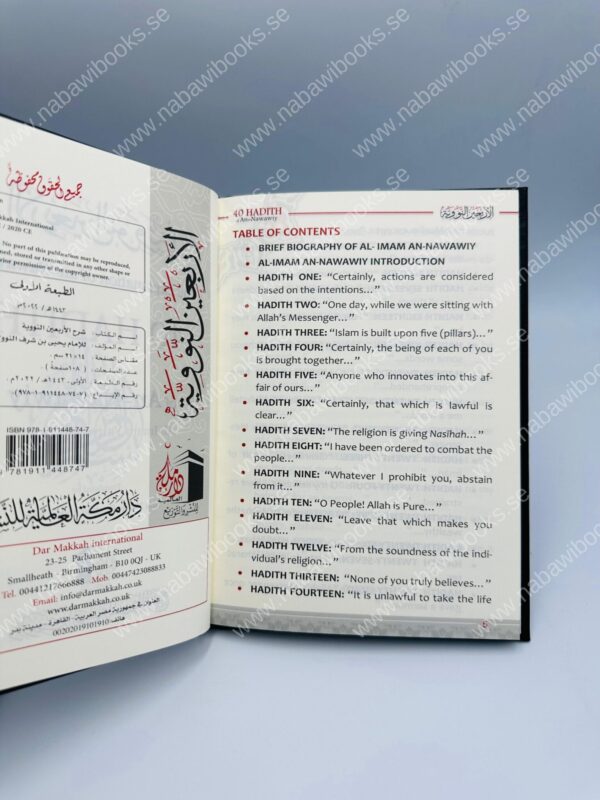 جميع الحقوق محفوظة
Makkah International
/ 2020 CE
No part of this publication may be reproduced,
stored, or transmitted in any other shape or
prior permission of the copyright owner.
الطبعة الأولى
١٤٤٣هـ / ٢٠٢٢م
اسم الكتاب : شرح الأربعين النووية
اسم المؤلف : للإمام يحيى بن شرف النووي
مقاس الصفحة : ١٤×٢١ سم
عدد الصفحات : (١٠٨ صفحة)
رقم الطبعة : الأولى، ١٤٤٣هـ / ٢٠٢٢م
رقم الإيداع :
ISBN 978-1-911448-74-7
781911 448747
دار مكة العالمية للنشر
Dar Makkah International
23-25 Parliament Street
Smallheath - Birmingham - B10 0QJ - UK
Tel. 00441217666888 Mob. 00447423088833
Email: info@darmakkah.co.uk
www.darmakkah.co.uk
العنوان في جمهورية مصر العربية - القاهرة - مدينة نصر
هاتف: 00202019101910
الأربعين النووية
دار مكة
العالمية
للنشر والتوزيع
40 HADITH
An-Nawawiy
الأربعين النووية
TABLE OF CONTENTS
• BRIEF BIOGRAPHY OF AL- IMAM AN-NAWAWIY
• AL-IMAM AN-NAWAWIY INTRODUCTION
• HADITH ONE: “Certainly, actions are considered
based on the intentions…”
• HADITH TWO: “One day, while we were sitting with
Allah’s Messenger…”
• HADITH THREE: “Islam is built upon five (pillars)…”
• HADITH FOUR: “Certainly, the being of each of you
is brought together…”
• HADITH FIVE: “Anyone who innovates into this af-
fair of ours…”
• HADITH SIX: “Certainly, that which is lawful is
clear…”
• HADITH SEVEN: “The religion is giving Nasihah…”
• HADITH EIGHT: “I have been ordered to combat the
people…”
• HADITH NINE: “Whatever I prohibit you, abstain
from it…”
• HADITH TEN: “O People! Allah is Pure…”
• HADITH ELEVEN: “Leave that which makes you
doubt…”
• HADITH TWELVE: “From the soundness of the indi-
vidual’s religion…”
• HADITH THIRTEEN: “None of you truly believes…”
• HADITH FOURTEEN: “It is unlawful to take the life
5
www.nabawibooks.se